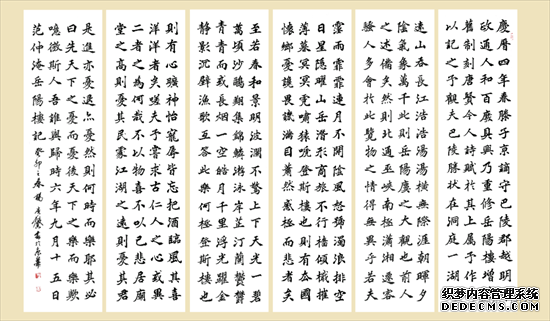 慶曆四年春滕子京謫守巴陵郡越明年
政通人和百廢具興乃重修岳陽樓增其
舊制刻唐賢今人詩賦於其上属予作文
以記之予觀夫巴陵勝状在洞庭一湖銜
遠山吞長江浩浩湯湯横無際涯朝暉夕
陰氣象萬千此則岳陽樓之大觀也前人
之述備矣然則北通巫峽南極瀟湘遷客
騷人多會於此覽物之情得無異乎若夫
霪雨霏霏連月不開陰風怒號濁浪排空
日星隱曜山岳潛形商旅不行樯傾楫摧
薄暮冥冥虎嘯猿啼登斯樓也則有去國
懷鄉憂讒畏譏滿目蕭然感極而悲者矣
至若春和景明波瀾不驚上下天光一碧
萬頃沙鷗翔集錦鱗游泳岸芷汀蘭鬱鬱
青青而或長煙一空皓月千里浮光躍金
静影沉璧漁歌互答此樂何極登斯樓也
則有心曠神怡寵辱皆忘把酒臨風其喜
洋洋者矣嗟夫予嘗求古仁人之心或異
二者之為何哉不以物喜不以己悲居廟
堂之高則憂其民處江湖之遠則憂其君
是進亦憂退亦憂然則何時而樂耶其必
曰先天下之憂而憂後天下之樂而樂歟
噫微斯人吾誰與歸時六年九月十五日
范仲淹岳陽樓記 癸卯之春楊書於京華
织梦内容管理系统
DEDECMS.COM